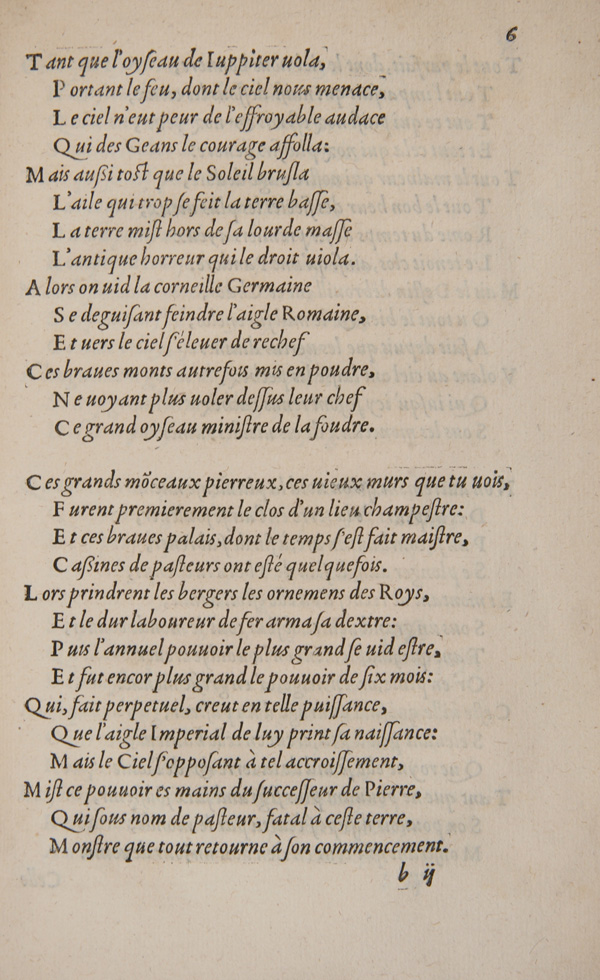 6
Tant que l'oyſeau de Iuppiter uola,
Portant le feu, dont le ciel nous menace,
Le ciel n'eut peur de l'effroyable audace
Qui des Geans le courage affolla:
Mais außi toſt que le Soleil bruſla
L'aile qui trop ſe feit la terre baſſe,
La terre miſt hors de ſa lourde maſſe
L'antique horreur qui le droit uiola.
Alors on uid la corneille Germaine
Se deguiſant feindre l'aigle Romaine,
Et uers le ciel ſ'éleuer de rechef
Ces braues monts autrefois mis en poudre,
Ne uoyant plus uoler deſſus leur chef
Ce grand oyſeau miniſtre de la foudre.
Ces grands mõceaux pierreux, ces uieux murs que tu uois,
Furent premierement le clos d'un lieu champeſtre:
Et ces braues palais, dont le temps ſ'eſt fait maiſtre,
Caßines de paſteurs ont eſté quelquefois.
Lors prindrent les bergers les ornemens des Roys,
Et le dur laboureur de fer arma ſa dextre:
Puis l'annuel pouuoir le plus grand ſe uid eſtre,
Et fut encor plus grand le pouuoir de ſix mois:
Qui, fait perpetuel, creut en telle puiſſance,
Que l'aigle Imperial de luy print ſa naiſſance:
Mais le Ciel ſ'oppoſant à tel accroiſſement,
Miſt ce pouuoir es mains du ſucceſſeur de Pierre,
Qui ſous nom de paſteur, fatal à ceſte terre,
Monſtre que tout retourne à ſon commencement.
b ij